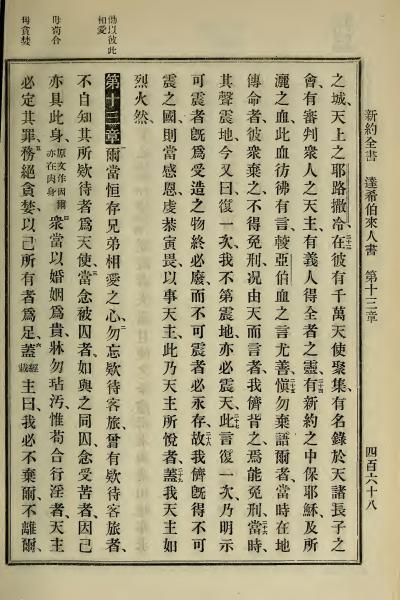 新約全書 達希伯來人書 第十三章 四百六十八
之城、天上之耶路撒冷、在彼有千萬天使聚集、有名錄於天諸長子之
會、有審判衆人之天主、有義人得全者之靈、有新約之中保耶穌、及所
灑之血、此血彷彿有言、較亞伯血之言尤善、愼勿棄語爾者、當時在地
傳命者、彼衆棄之、不得免刑、況由天而言者、我儕背之、焉能免刑、當時
其聲震地、今又曰、復一次我不第震地、亦必震天、此言復一次、乃明示
可震者旣爲受造之物、終必廢、而不可震者必永存、故我儕旣得不可
震之國、則當感恩、虔恭寅畏以事天主、此乃天主所悅者、蓋我天主如
烈火然、
第十三章 爾當恒存兄弟相愛之心、勿忘欵待客旅、曾有欵待客旅者、
不自知其所欵待者爲天使、當念被囚者、如與之同囚、念受苦者、因己
亦具此身、原文作因爾亦在肉身衆當以婚姻爲貴、牀勿玷汚、惟苟合行淫者、天主
必定其罪、務絕貪婪、以己所有者爲足、蓋經載主曰、我必不棄爾、不離爾、
勸以彼此相愛
毋苟合
毋貪婪